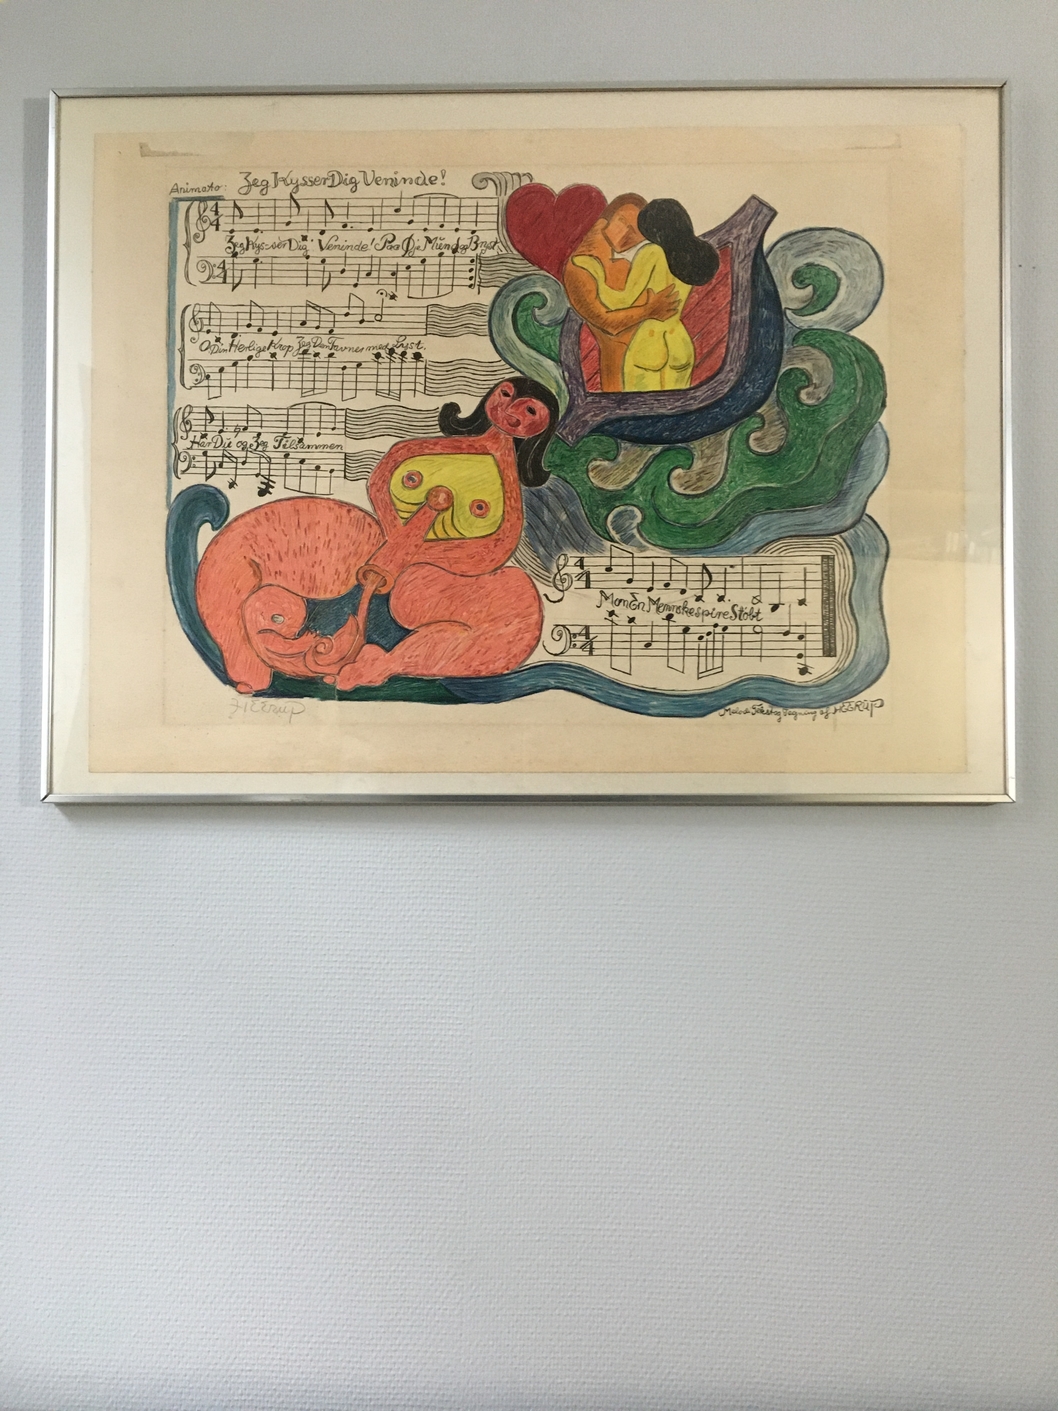 Jeg Kysser Dig Veninde!
Animato:
Jeg Kys-ser Dig Veninde! Paa Øje Mund og Bryst,
O Din Herlige Krop Jeg Den Favner med Lyst.
Har Du og Jeg Tilsammen
Mon En Menneskespire Støbt
HEERUP
Melodi Tekst og Tegning af HEERUP